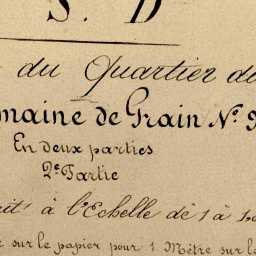 S. D
du Quartier du
maine de Grain N.º 9
En deux parties
2.e Partie
à l'Echelle de 1 à
sur le papier pour 1 Mètre sur le